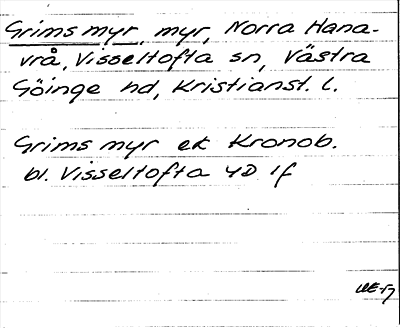 Grims myr, myr, Norra Hana-
vrå, Visseltofta sn, Västra
Göinge hd, Kristianst. l.
Grims myr ek Kronob.
bl. Visseltofta 4D 1f